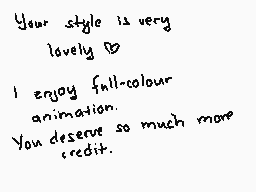 Your style is very
lovely ♡
I enjoy full-colour
animation.
You deserve so much more
credit.